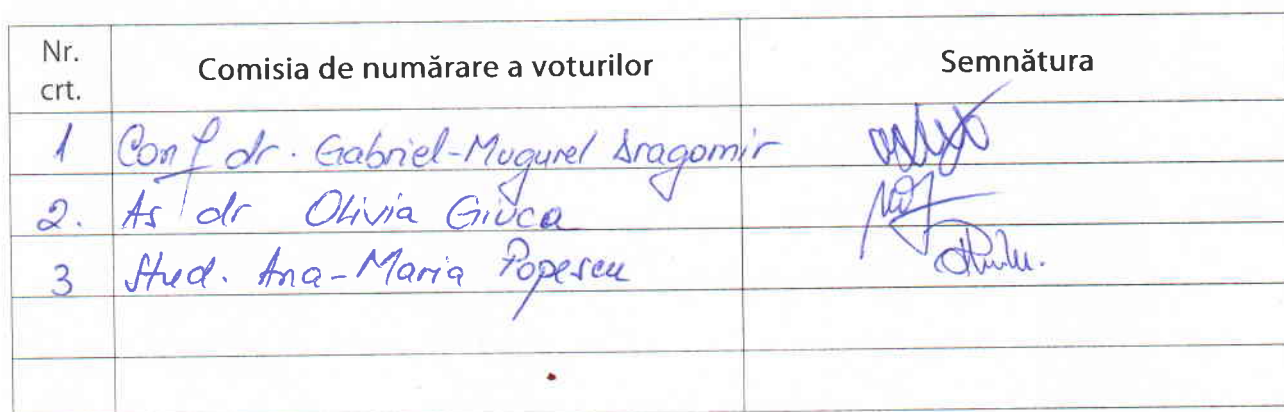 Nr. crt. Comisia de numărare a voturilor Semnătura
1 Conf dr. Gabriel-Mugurel Dragomir
2. As dr Olivia Giuca
3 Stud. Ana-Maria Popescu